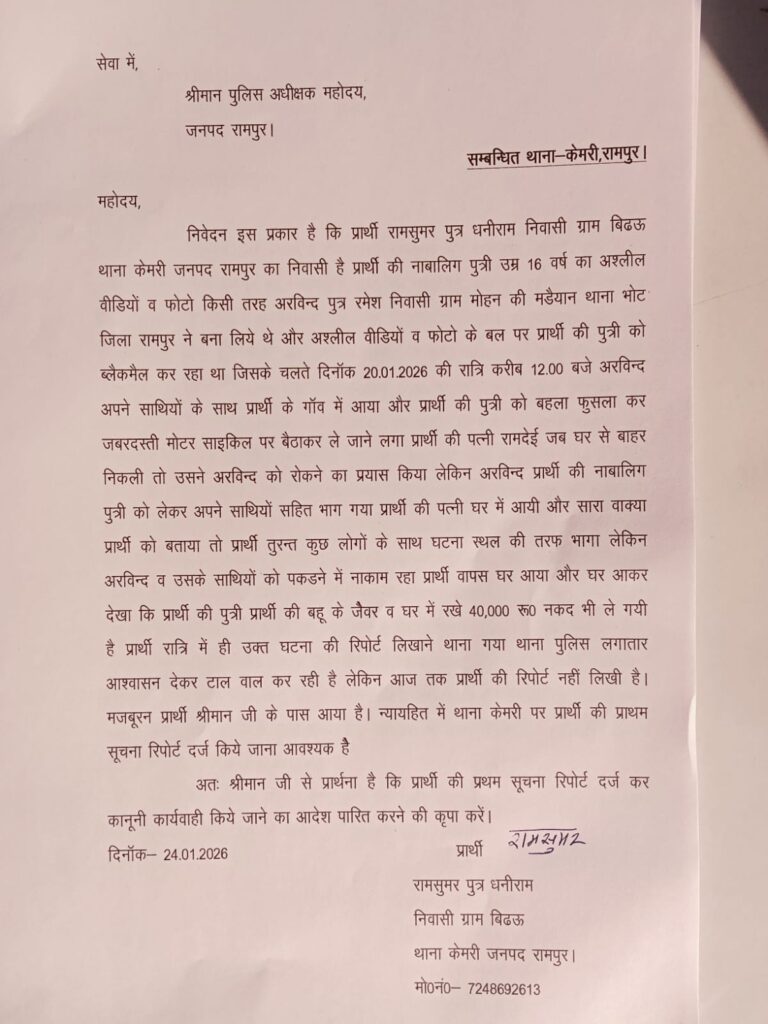 सेवा में,
श्रीमान पुलिस अधीक्षक महोदय,
जनपद रामपुर।
सम्बन्धित थाना–केमरी,रामपुर।
महोदय,
निवेदन इस प्रकार है कि प्रार्थी रामसुमर पुत्र धनीराम निवासी ग्राम बिढऊ
थाना केमरी जनपद रामपुर का निवासी है प्रार्थी की नाबालिग पुत्री उम्र 16 वर्ष का अश्लील
वीडियों व फोटो किसी तरह अरविन्द पुत्र रमेश निवासी ग्राम मोहन की मडैयान थाना भोट
जिला रामपुर ने बना लिये थे और अश्लील वीडियों व फोटो के बल पर प्रार्थी की पुत्री को
ब्लैकमैल कर रहा था जिसके चलते दिनॉक 20.01.2026 की रात्रि करीब 12.00 बजे अरविन्द
अपने साथियों के साथ प्रार्थी के गॉव में आया और प्रार्थी की पुत्री को बहला फुसला कर
जबरदस्ती मोटर साइकिल पर बैठाकर ले जाने लगा प्रार्थी की पत्नी रामदेई जब घर से बाहर
निकली तो उसने अरविन्द को रोकने का प्रयास किया लेकिन अरविन्द प्रार्थी की नाबालिग
पुत्री को लेकर अपने साथियों सहित भाग गया प्रार्थी की पत्नी घर में आयी और सारा वाक्या
प्रार्थी को बताया तो प्रार्थी तुरन्त कुछ लोगों के साथ घटना स्थल की तरफ भागा लेकिन
अरविन्द व उसके साथियों को पकडने में नाकाम रहा प्रार्थी वापस घर आया और घर आकर
देखा कि प्रार्थी की पुत्री प्रार्थी की बहू के जेवर व घर में रखे 40,000 रू0 नकद भी ले गयी
है प्रार्थी रात्रि में ही उक्त घटना की रिपोर्ट लिखाने थाना गया थाना पुलिस लगातार
आश्वासन देकर टाल वाल कर रही है लेकिन आज तक प्रार्थी की रिपोर्ट नहीं लिखी है।
मजबूरन प्रार्थी श्रीमान जी के पास आया है। न्यायहित में थाना केमरी पर प्रार्थी की प्राथम
सूचना रिपोर्ट दर्ज किये जाना आवश्यक है
अतः श्रीमान जी से प्रार्थना है कि प्रार्थी की प्रथम सूचना रिपोर्ट दर्ज कर
कानूनी कार्यवाही किये जाने का आदेश पारित करने की कृपा करें।
दिनॉक– 24.01.2026 प्रार्थी रामसुमर
रामसुमर पुत्र धनीराम
निवासी ग्राम बिढऊ
थाना केमरी जनपद रामपुर।
मो0नं0– 7248692613